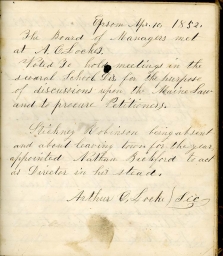 Epsom Apr. 10, 1852.
The Board of Managers met
at A. C. Locke's.
Voted To hold meetings in the
several School Dis. for the purpose
of discussions upon the Maine Law
and to procure Petitioners.
Robinson being absent
and about leaving town for the year
appointed Nathan Bickford to act
as Director in his stead.
Arthur C. Locke Sec.